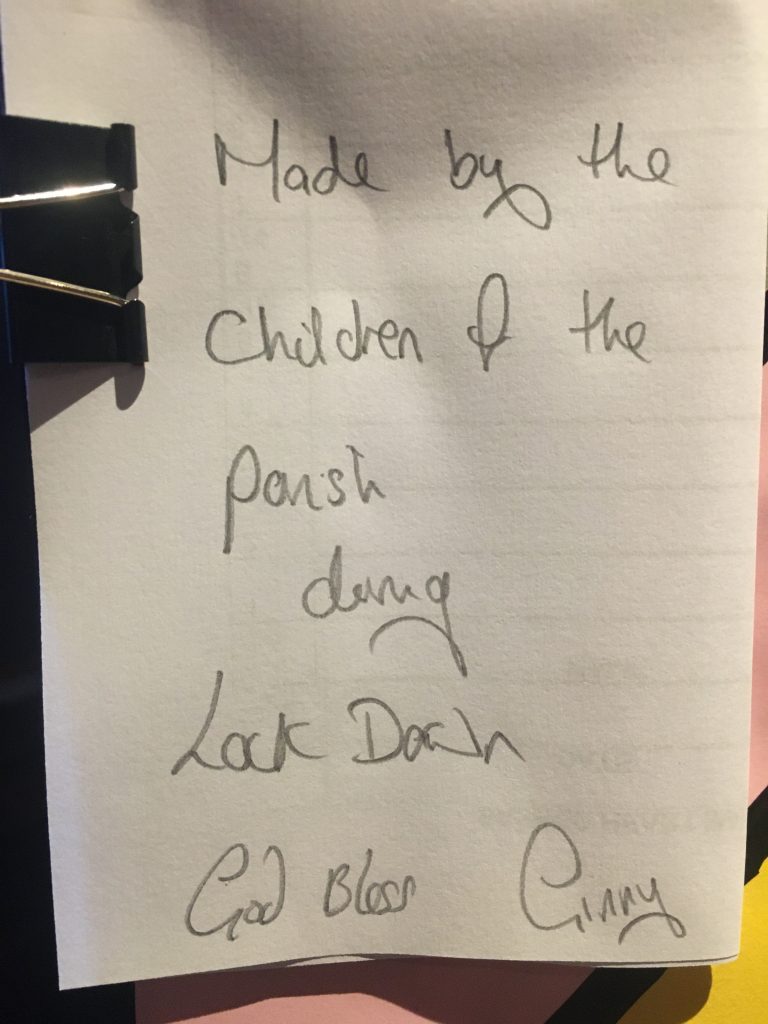 Made by the
Children of the
Parish
during
Lock Down
God Bless Ginny